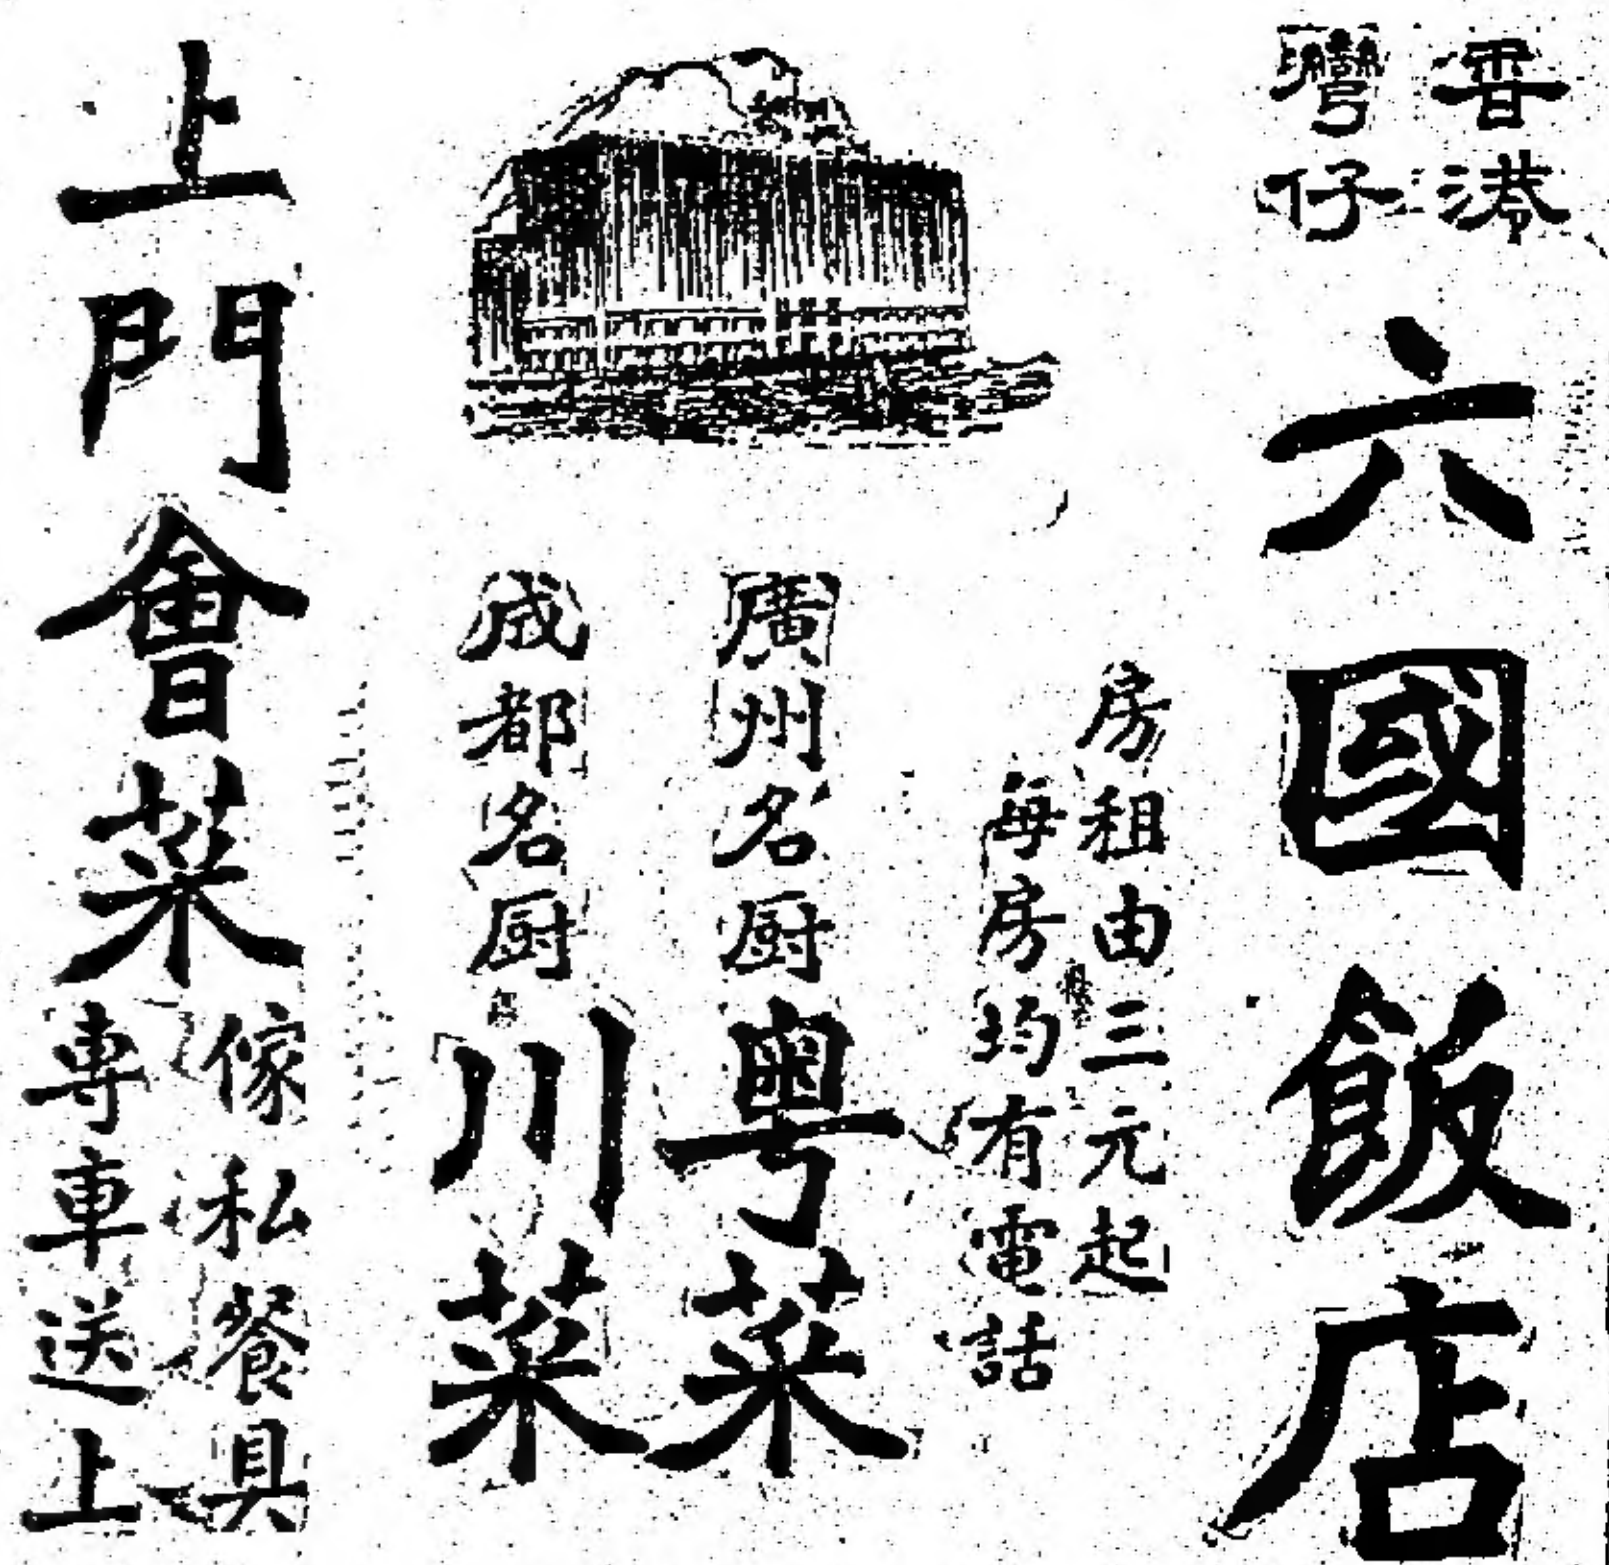 香港
灣仔
六國飯店
房租由三元起
每房均有電話
廣州名厨
粤菜
成都名厨
川菜
上門會菜
傢私餐具
專車送上